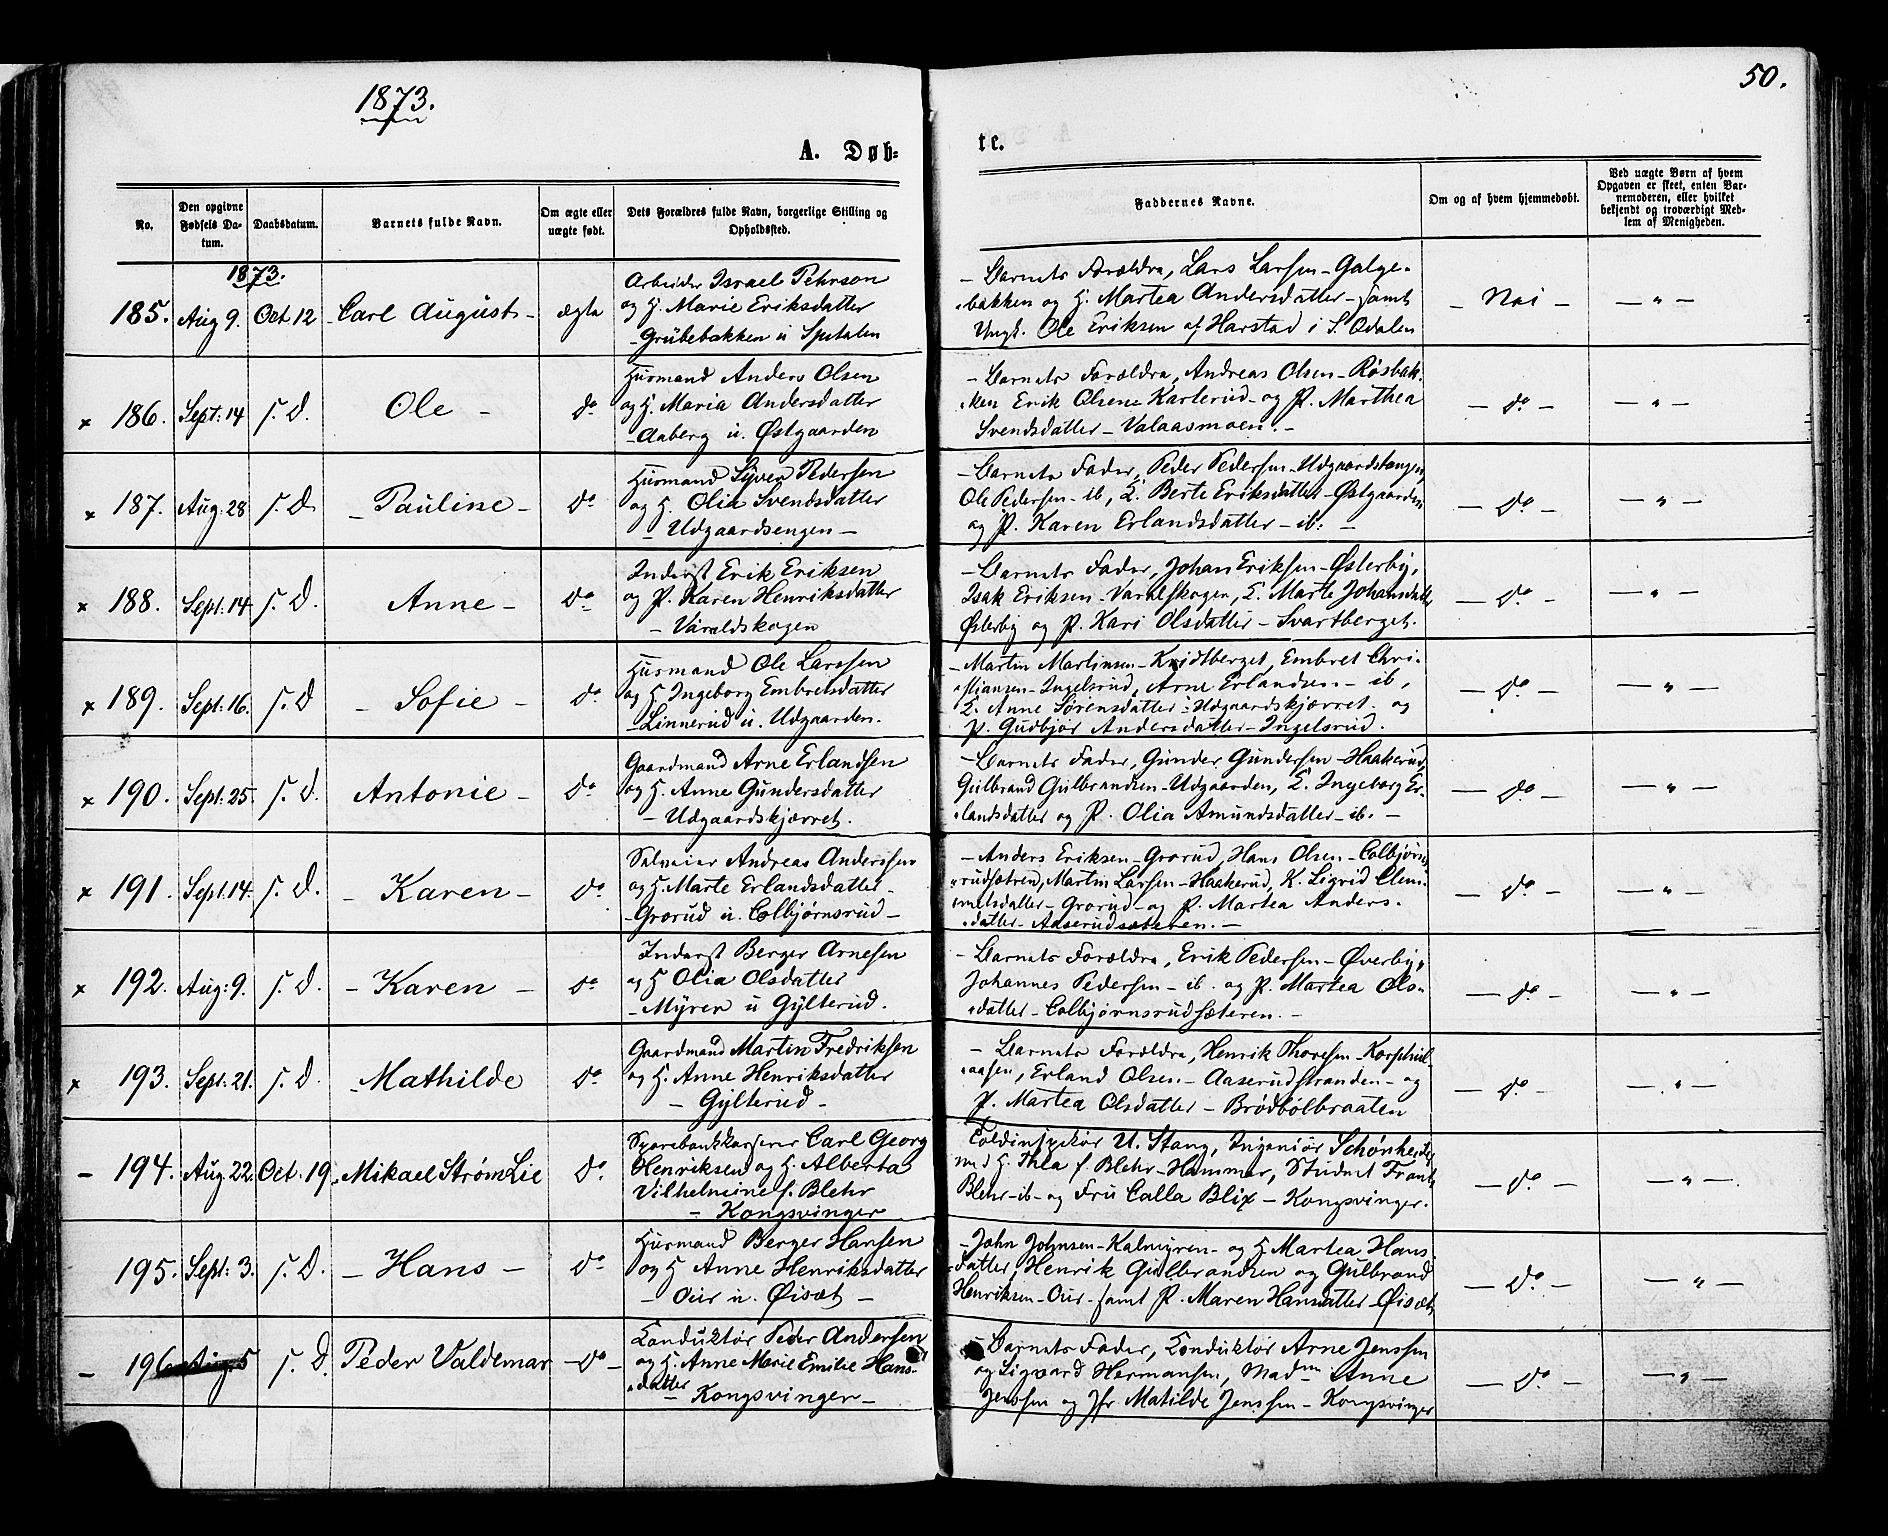 1873.
50.
A. Døb-
te.
No.
Den opgivne Fødsels Da-
tum.
Daabsdatum.
Barnets fulde Navn.
Om ægte eller
uægte født.
Dets Forældres fulde Navn, borgerlige Stilling og
Opholdssted.
Faddernes Navne.
Om og af hvem hjemmedøbt.
Ved uægte Børn af hvem
Opgaven er skeet, enten Bar-
nemoderen, eller hvilket
bekjendt og troværdigt Med-
lem af Menigheden.
1873.
185. Aug 9. Oct. 12 - Carl August - ægte
Arbeider Israel Pehrson
og H. Marie Eriksdatter
- Grübebakken u Spetalen
- Barnets Forældre, Lars Larsen - Galge-
bakken og H. Martea Andersdatter - samt
Ungk. Ole Eriksen af Harstad i S. Odalen
- Nei - - " -
x 186. Sept: 14 s. D. Ole - do
Husmand Anders Olsen
og H. Maria Andersdatter
- Aaberg u. Østgaarden
- Barnets Forældre, Andreas Olsen - Røsbak-
ken Erik Olsen Karterud - og P. Marthea
Svendsdatter - Valaasmoen. -
- do - - " -
x 187. Aug: 28 s. D. - Pauline - do
Husmand Syver Pedersen
og H. Olia Svendsdatter
- Udgaardsengen -
- Barnets Fader, Peder Pedersen - Udgaardstangen,
Ole Pedersen - ib, E. Berte Eriksdatter - Østgaarden
og P. Karen Erlandsdatter - ib. -
- do - - " -
x 188. Sept: 14 s. D. Anne - do
Inderst Erik Eriksen
og P. Karen Henriksdatter
- Varaldskogen
- Barnets Fader, Johan Eriksen - Østerby,
Isak Eriksen - Varalskogen, E. Marte Johansdatter
Østerby og P. Kari Olsdatter - Svartberget.
- do - - " -
x 189. Sept: 16. s. D - Sofie - do
Husmand Ole Larssen
og H Ingeborg Embretsdatter
- Linnerud u. Udgaarden.
- Martin Martinsen - Kridtberget, Embret Chri-
stiansen - Ingelsrud, Arne Erlandsen - ib,
E. Anne Sørensdatter - Udgaardskjærret. og
P. Gudbjør Andersdatter - Ingelsrud.
- do - - " -
x 190. Sept: 25. s. D. Antonie - do
Gaardmand Arne Erlandsen
og H. Anne Gundersdatter
- Udgaardskjærret.
- Barnets Fader, Gunder Gundersen - Haakerud,
Gulbrand Gulbrandsen - Udgaarden, E. Ingeborg Er-
landsdatter og P. Olia Amundsdatter - ib. -
- do - - " -
x 191. Sept: 14. s. D. - Karen - do
Selveier Andreas Anderssen
og H. Marte Erlandsdatter -
- Grorud u. Colbjørnsrud -
- Anders Eriksen - Grorud, Hans Olsen - Colbjørns-
rudsætren, Martin Larsen - Haakerud, K. Sigrid Clem-
metsdatter - Grorud - og P. Martea Anders-
datter - Aaserudsæteren. -
- do - - " -
x 192. Aug: 9. s. D. - Karen - do
Inderst Berger Arnesen
og H Olia Olsdatter
- Myrer u Gylterud.
- Barnets Forældre, Erik Pedersen - Øverby,
Johannes Pedersen - ib. og P. Martea Ols-
datter - Colbjørnsrudsæteren. -
- do - - " -
x 193. Sept: 21. s. D. - Mathilde do
Gaardmand Martin Fredriksen
og H. Anne Henriksdatter
- Gylterud -
- Barnets Forældre, Henrik Thoresen -
aasen, Erland Olsen - Aaserudstranden - og
P. Martea Olsdatter - Brødbølbraaten
- do - - " -
- 194. Aug 22. Oct. 19 - Mikael Strøm Lie do
Sparebankkasserer Carl Georg
Henriksen og H. Alberta
Vilhelmine f. Blehr
- Kongsvinger
Toldinspekør U. Stang, Ingeniør
med H. Thea f. Blehr - Hammer, Student Frants
Blehr - ib - og Fru Calla Blix - Kongsvinger.
- do - - " -
195. Sept: 3. s. D. - Hans - do
Husmand Berger Hansen
og H Anne Henriksdatter
- Our u. Øisæt -
- John Johnsen - Kalmyren - og H. Martea Hans-
datter, Henrik Gulbrandsen og Gulbrand
Henriksen - Our - samt P. Maren Hansdatter - Øisæt
- do - - " -
- 196 Aug: 5 s. D. Peder Valdemar - do -
Konduktør Peder Andersen
og H. Anne Marie Emilie Hans-
datter
- Kongsvinger -
- Barnets Fader, Konduktør Arne Jenssen
og Sigvard Hermansen, Madm Anne
Jenssen og Jfr Matilde Jenssen - Kongsvinger
- do - - " -